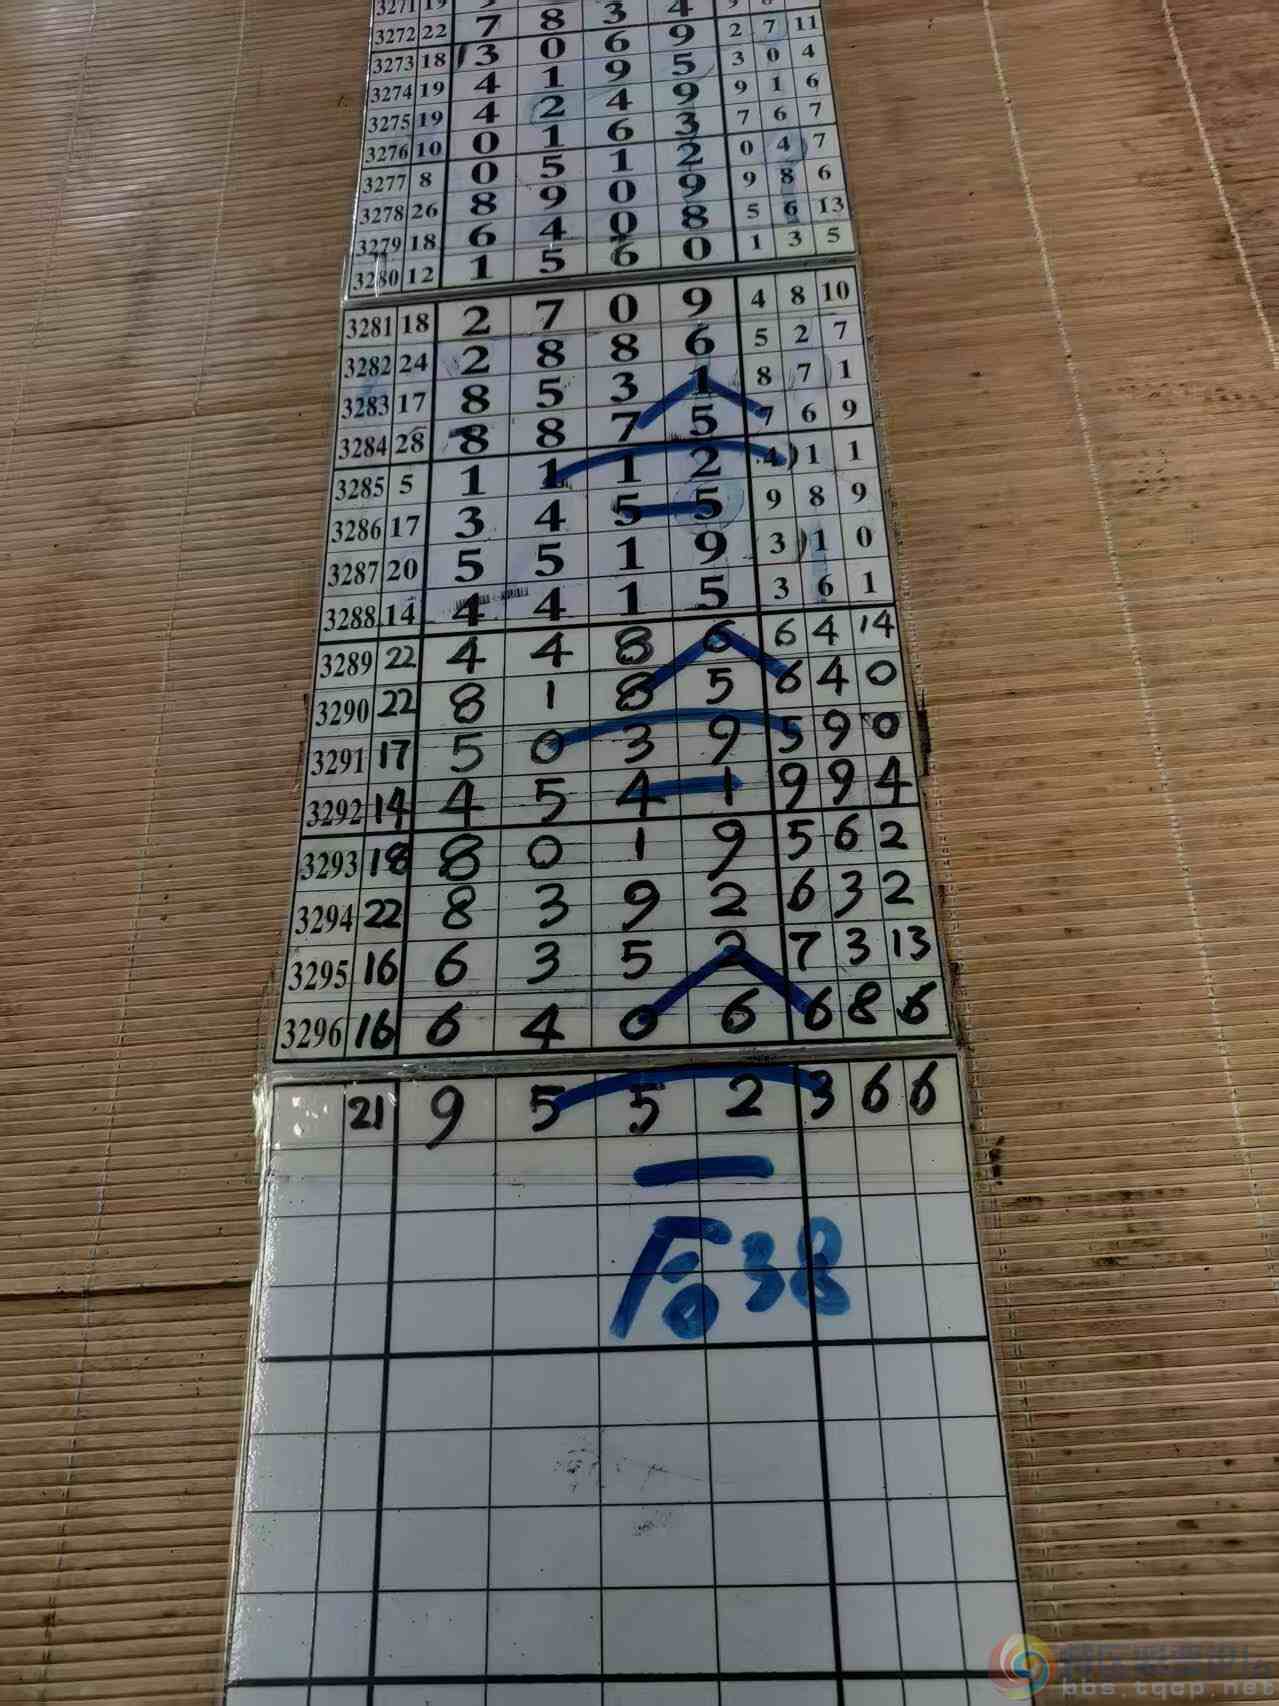 3271 19
3272 22 7 8 3 4 2 7 11
3273 18 3 0 6 9 3 0 4
3274 19 4 1 9 5 9 1 6
3275 19 4 2 4 9 7 6 7
3276 10 0 1 6 3 0 4 7
3277 8 0 5 1 2 9 8 6
3278 26 8 9 0 9 5 6 13
3279 18 6 4 0 8 1 3 5
3280 12 1 5 6 0
3281 18 2 7 0 9 4 8 10
3282 24 2 8 8 6 5 2 7
3283 17 8 5 3 1 8 7 1
3284 28 8 8 7 5 7 6 9
3285 5 1 1 1 2 4 1 1
3286 17 3 4 5 5 9 8 9
3287 20 5 5 1 9 3 1 0
3288 14 4 4 1 5 3 6 1
3289 22 4 4 8 6 6 4 14
3290 22 8 1 8 5 6 4 0
3291 17 5 0 3 9 5 9 0
3292 14 4 5 4 1 9 9 4
3293 18 8 0 1 9 5 6 2
3294 22 8 3 9 2 6 3 2
3295 16 6 3 5 2 7 3 13
3296 16 6 4 0 6 6 8 6
21 9 5 5 2 3 6 6
后38
bbs.tqcp.net